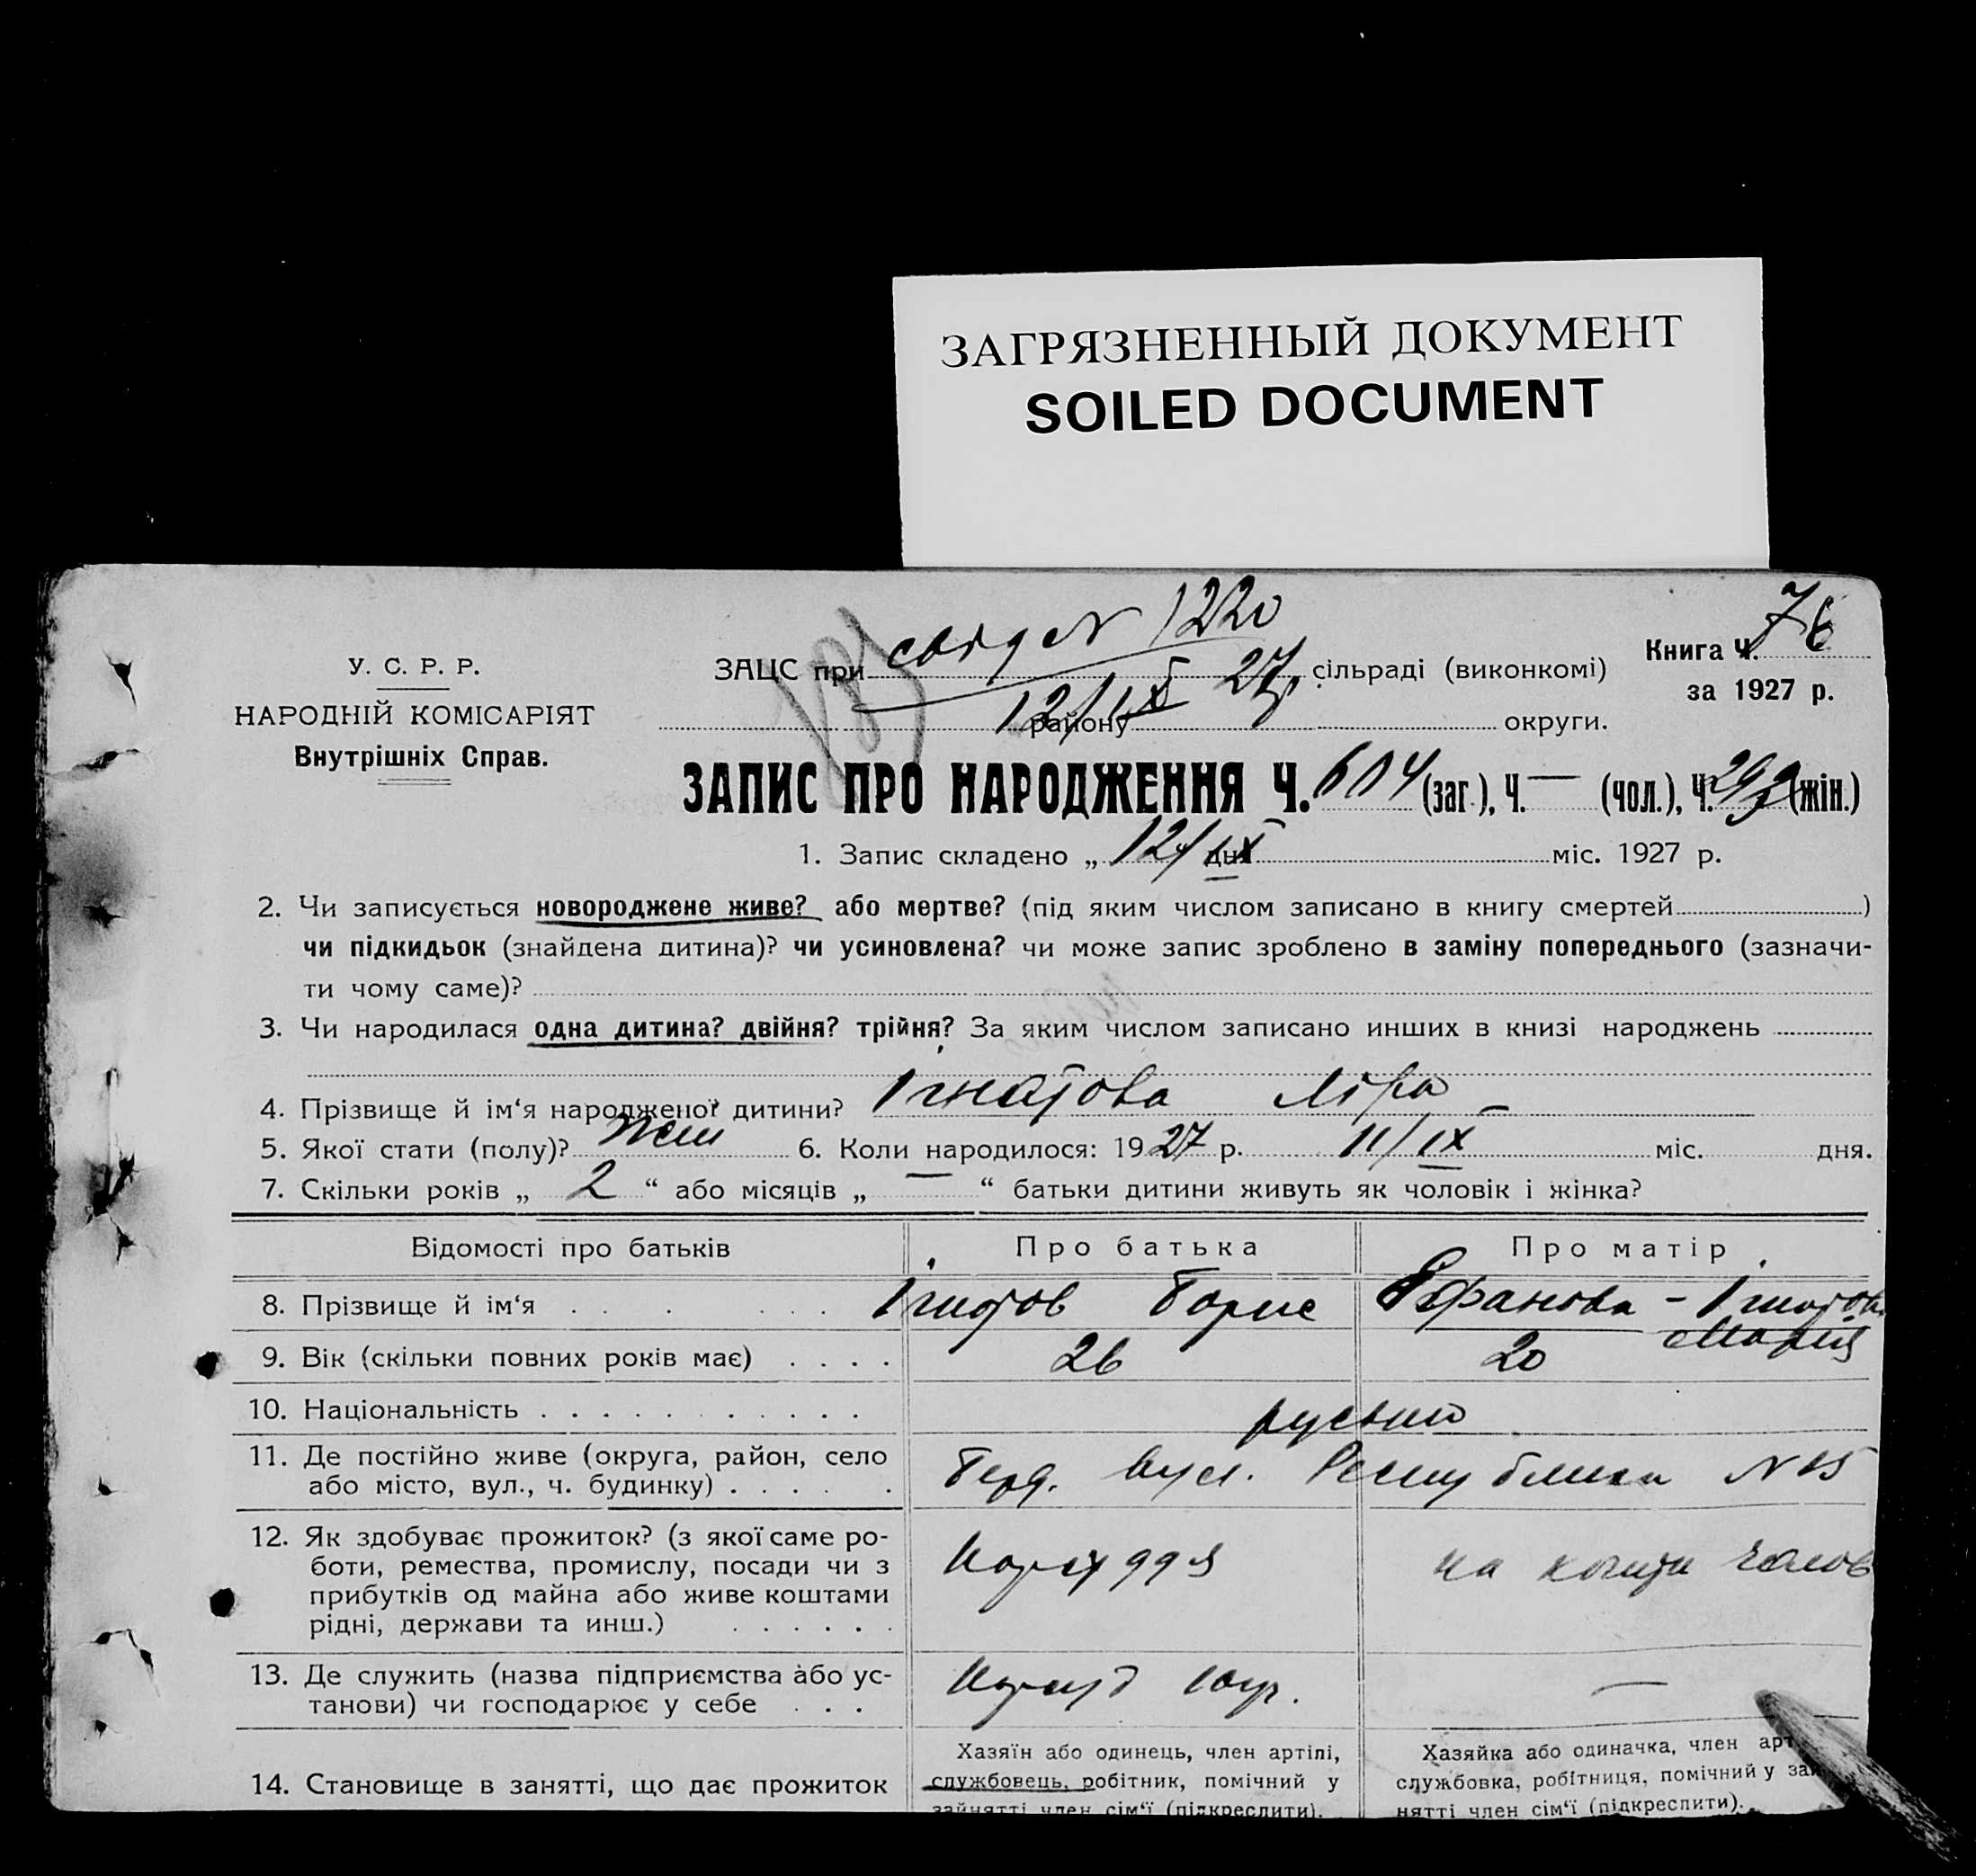 ЗАГРЯЗНЕННЫЙ ДОКУМЕНТ
SOILED DOCUMENT
У. С. Р. Р.
НАРОДНІЙ КОМІСАРІЯТ
Внутрішніх Справ.
183
ЗАЦС при свід N 1220 сільраді (виконкомі)
12/IX 27 р. району округи.
Книга Ч. 76
за 1927 р.
ЗАПИС ПРО НАРОДЖЕННЯ Ч. 604 (заг.), Ч. — (чол.), Ч. 293 (жін.)
1. Запис складено „ 12/IX дня міс. 1927 р.
2. Чи записується новороджене живе? або мертве? (під яким числом записано в книгу смертей )
чи підкидьок (знайдена дитина)? чи усиновлена? чи може запис зроблено в заміну попереднього (зазначи-
ти чому саме)?
3. Чи народилася одна дитина? двійня? трійня? За яким числом записано инших в книзі народжень
4. Прізвище й ім‘я народженої дитини? Ігнатова Ліра —
5. Якої стати (полу)? жін 6. Коли народилося: 1927 р. 11/IX міс. дня.
7. Скільки років „ 2 “ або місяців „ — “ батьки дитини живуть як чоловік і жінка?
Відомості про батьків Про батька Про матір
8. Прізвище й ім‘я . . . . . . Ігнатов Борис Єфанова - Ігнатова
Марія
9. Вік (скільки повних років має) . . . . 26 20
10. Національність . . . . . . . . . . . руські
11. Де постійно живе (округа, район, село
або місто, вул., ч. будинку) . . . . . Берд. вул. Республіки N 15
12. Як здобуває прожиток? (з якої саме ро-
боти, ремества, промислу, посади чи з
прибутків од майна або живе коштами
рідні, держави та инш.) . . . . . . на кошти чолов
13. Де служить (назва підприємства або ус-
танови) чи господарює у себе . . . —
14. Становище в занятті, що дає прожиток
Хазяїн або одинець, член артілі,
службовець, робітник, помічний у
зайнятті член сім‘ї (підкреслити).
Хазяйка або одиначка, член арт
службовка, робітниця, помічний у зай
нятті член сім‘ї (підкреслити).